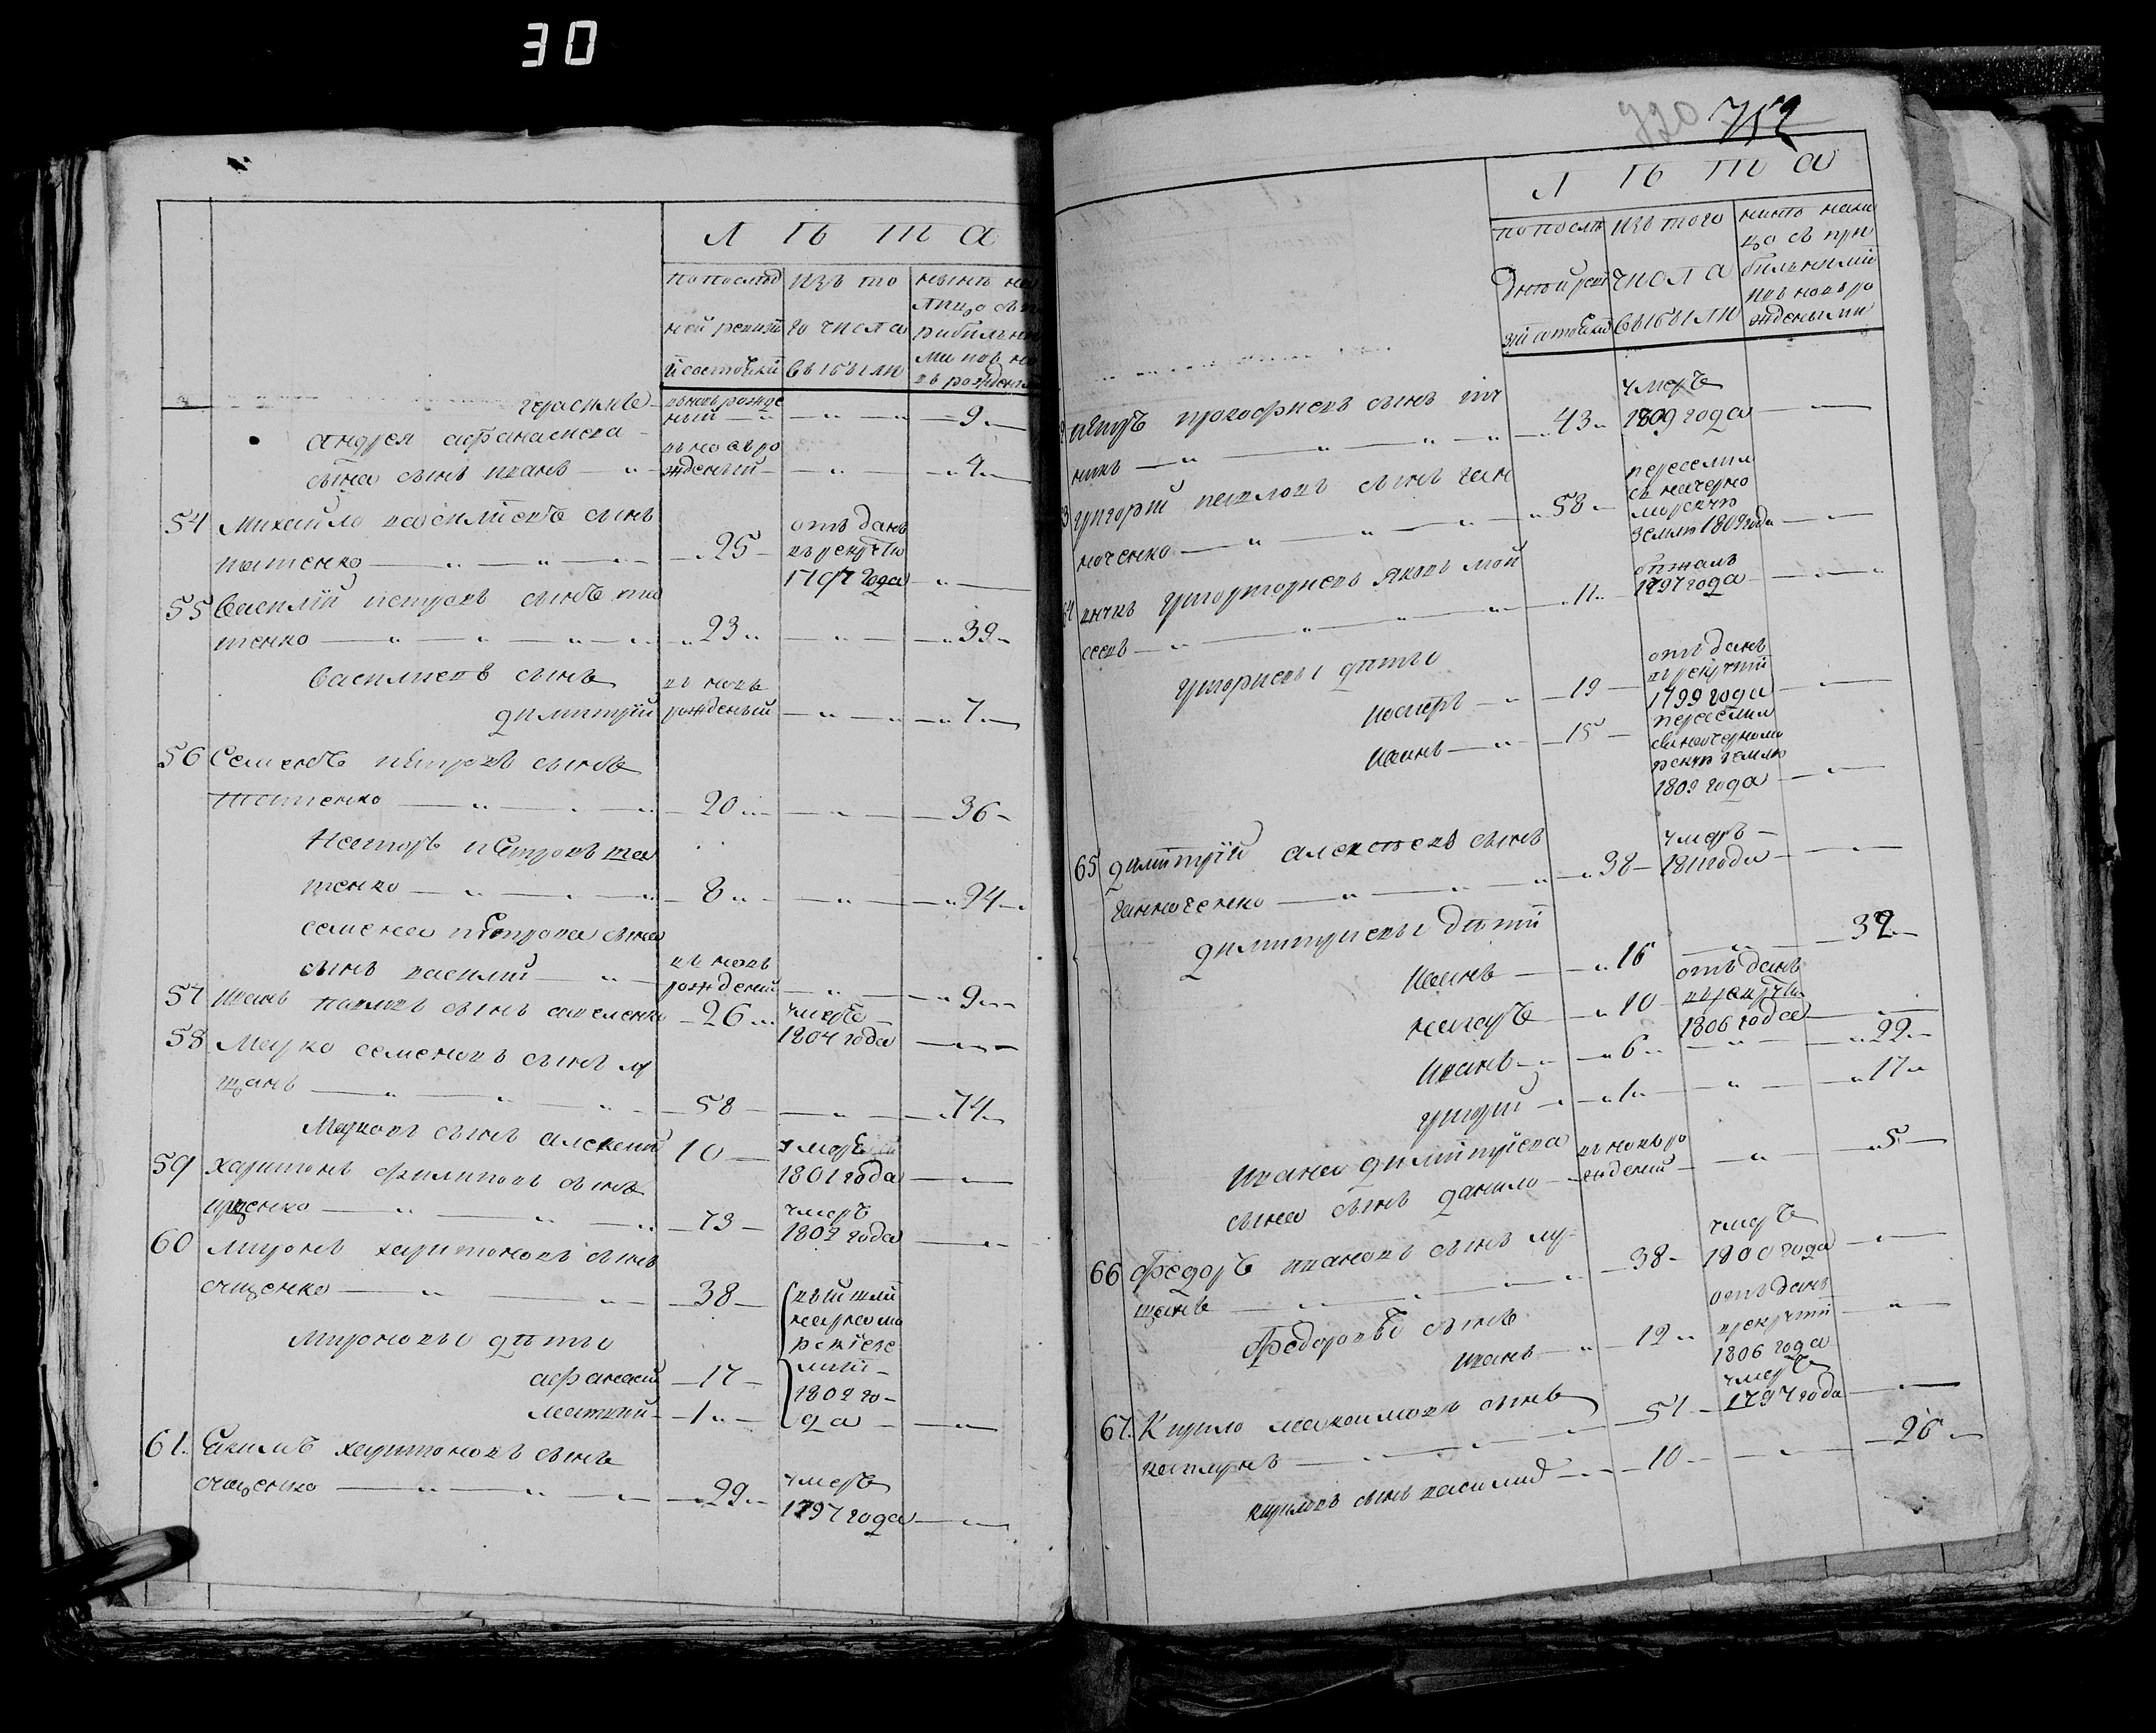 30
Л Ѣ Т А
по послѣд
ней ревизи
и состояли
изъ то
го числа
выбыли
нынѣ на
лицо съ п
рибылы
ми и в но
въ рожден
герасимъ
вновь рожде
ный — „ — „ — 9 —
андрея афанасиева
сына сынъ иванъ — „
вновь ро
жденый — „ — „ 4 —
54 Михайло василиевъ сынъ
тенко — „ — „ — „ 25 —
отъ данъ
въ рекруты
1797 года — „ —
55 Василий петровъ сынъ
тенко — „ — „ — „ 23 „ — „ — „ 39 „
василиевъ сынъ
димитрий
вновь
рожденый — „ — „ 7 —
56 Семенъ петровъ сынъ
тенко — „ — 20 „ — „ — 36 —
Несторъ петровъ
тенко — „ — 8 „ — „ — „ 24 „
семена петрова сына
сынъ василий — „
вновь
рожденый — „ — „ 9 „
57 иванъ павловъ сынъ — 26 „
умеръ
1804 года — „ —
58 Марко семеновъ сынъ лу
щанъ — „ — „ — 58 — „ — „ 74 „
Марковъ сынъ алексей 10 —
умеръ
1801 года — „ —
59 харитонъ филиповъ сынъ
ищенко — „ — „ — 73 —
умеръ
1802 года — „ —
60 миронъ харитоновъ сынъ
ощенко — „ — „ — 38 —
мироновы дѣты
афанасий — 17 —
матвий — 1 „ —
1802 го
да — „ —
61. Екимъ харитоновъ сынъ
ощенко — „ — „ — „ 29 „
умеръ
1797 года — „ —
720 752
Л Ѣ Т А
по послѣ
дней реви
зи состояли
изъ того
числа
выбыли
нынѣ нали
цо съ при
былыми
и в новь ро
ждеными
петръ прокофиевъ сынъ
„ — „ — „ 43 „
умеръ
1809 года — „ —
григорий павловъ сынъ ган
ноченко — „ — „ — „ 58 —
переселил
ся на черно
морскую
землю 1809 года — „ —
внукъ григориевъ яковъ мой
сеевъ — „ — „ — „ 11 „
1797 года — „ —
григориевы дѣты
19 —
отъ данъ
в рекруты
1799 года — „ —
15 —
переселил
ся на черномо
рскую землю
1809 года — „ —
65 димитрий алексеевъ сынъ
ганноченко — „ — „ — „ 38 —
умеръ —
1811 года — „ —
димитриевы дѣти
„ 16 — „ — 32 „
назаръ — „ 10 —
отъ данъ
в рекруты
1806 года — „ —
иванъ — „ — „ 6 „ — „ — „ 22 —
григорий — „ 1 „ — „ — „ 17 „
ивана димитриева
сына сынъ данило —
вновь ро
жденый — „ — „ 5 —
66 федоръ ивановъ сынъ лу
щанъ — „ — „ — 38 —
умеръ
1800 года — „ —
федоровъ сынъ
иванъ — „ — 12 „
отъ данъ
в рекруты
1806 года — „ —
67. Кирило максимовъ сынъ
— „ — „ — 51 —
умеръ
1797 года — „ —
кириловъ сынъ василий — „ — 10 — „ — 26 „